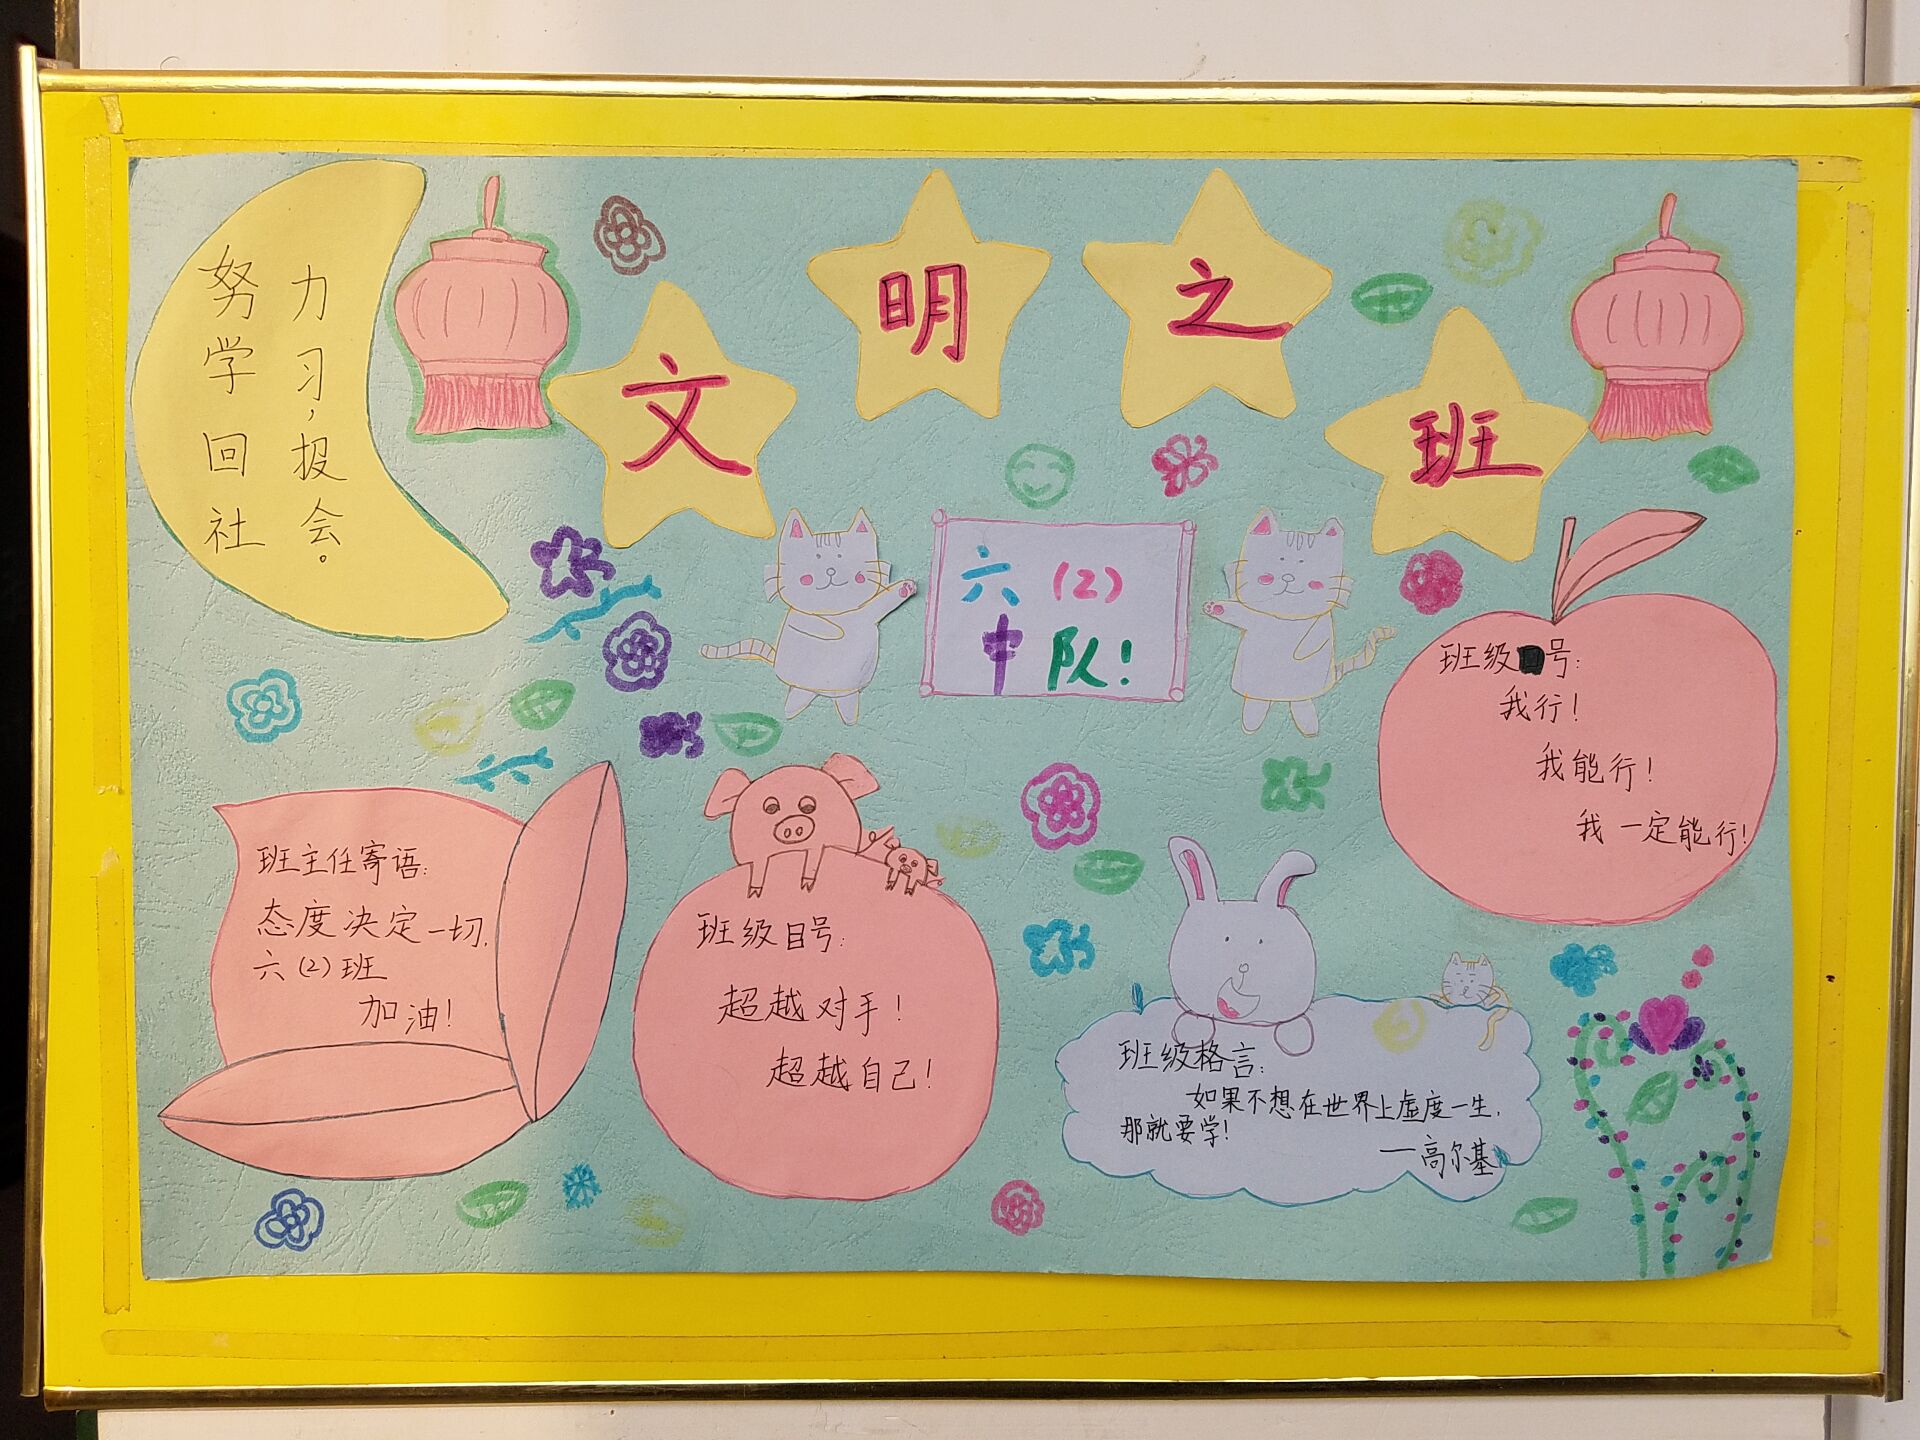 文明之班
努力
学习，
回报
社会。
六（2）
中队！
班级号：
我行！
我能行！
我一定能行！
班主任寄语：
态度决定一切，
六（2）班
加油！
班级目号：
超越对手！
超越自己！
班级格言：
如果不想在世界上虚度一生，
那就要学！
—高尔基